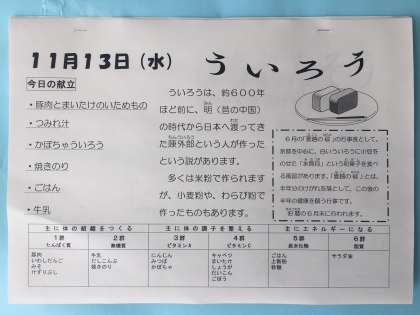 11月13日（水）
ういろう
今日の献立
・豚肉とまいたけのいためもの
・つみれ汁
・かぼちゃういろう
・焼きのり
・ごはん
・牛乳
ういろうは、約６００年
ほど前に、明（昔の中国）
の時代から日本へ渡ってき
た陳外郎という人が作った
という説があります。
多くは米粉で作られます
が、小麦粉や、わらび粉で
作ったものもあります。
６月の「夏越の祓」の行事食として、
京都を中心に、白いういろうに小豆を
のせた「水無月」という和菓子を食べ
る風習があります。「夏越の祓」とは、
半年分のけがれを落として、この後の
半年の健康を願う行事です。
６月末に行われます。
主に体の組織をつくる
主に体の調子を整える
主にエネルギーになる
１群 たんぱく質
２群 無機質
３群 ビタミンA
４群 ビタミンC
５群 炭水化物
６群 脂質
豚肉
いわしだんご
みそ
けずりぶし
牛乳
だしこんぶ
焼きのり
にんじん
みつば
かぼちゃ
キャベツ
まいたけ
しょうが
だいこん
ごぼう
ごはん
上新粉
砂糖
サラダ油